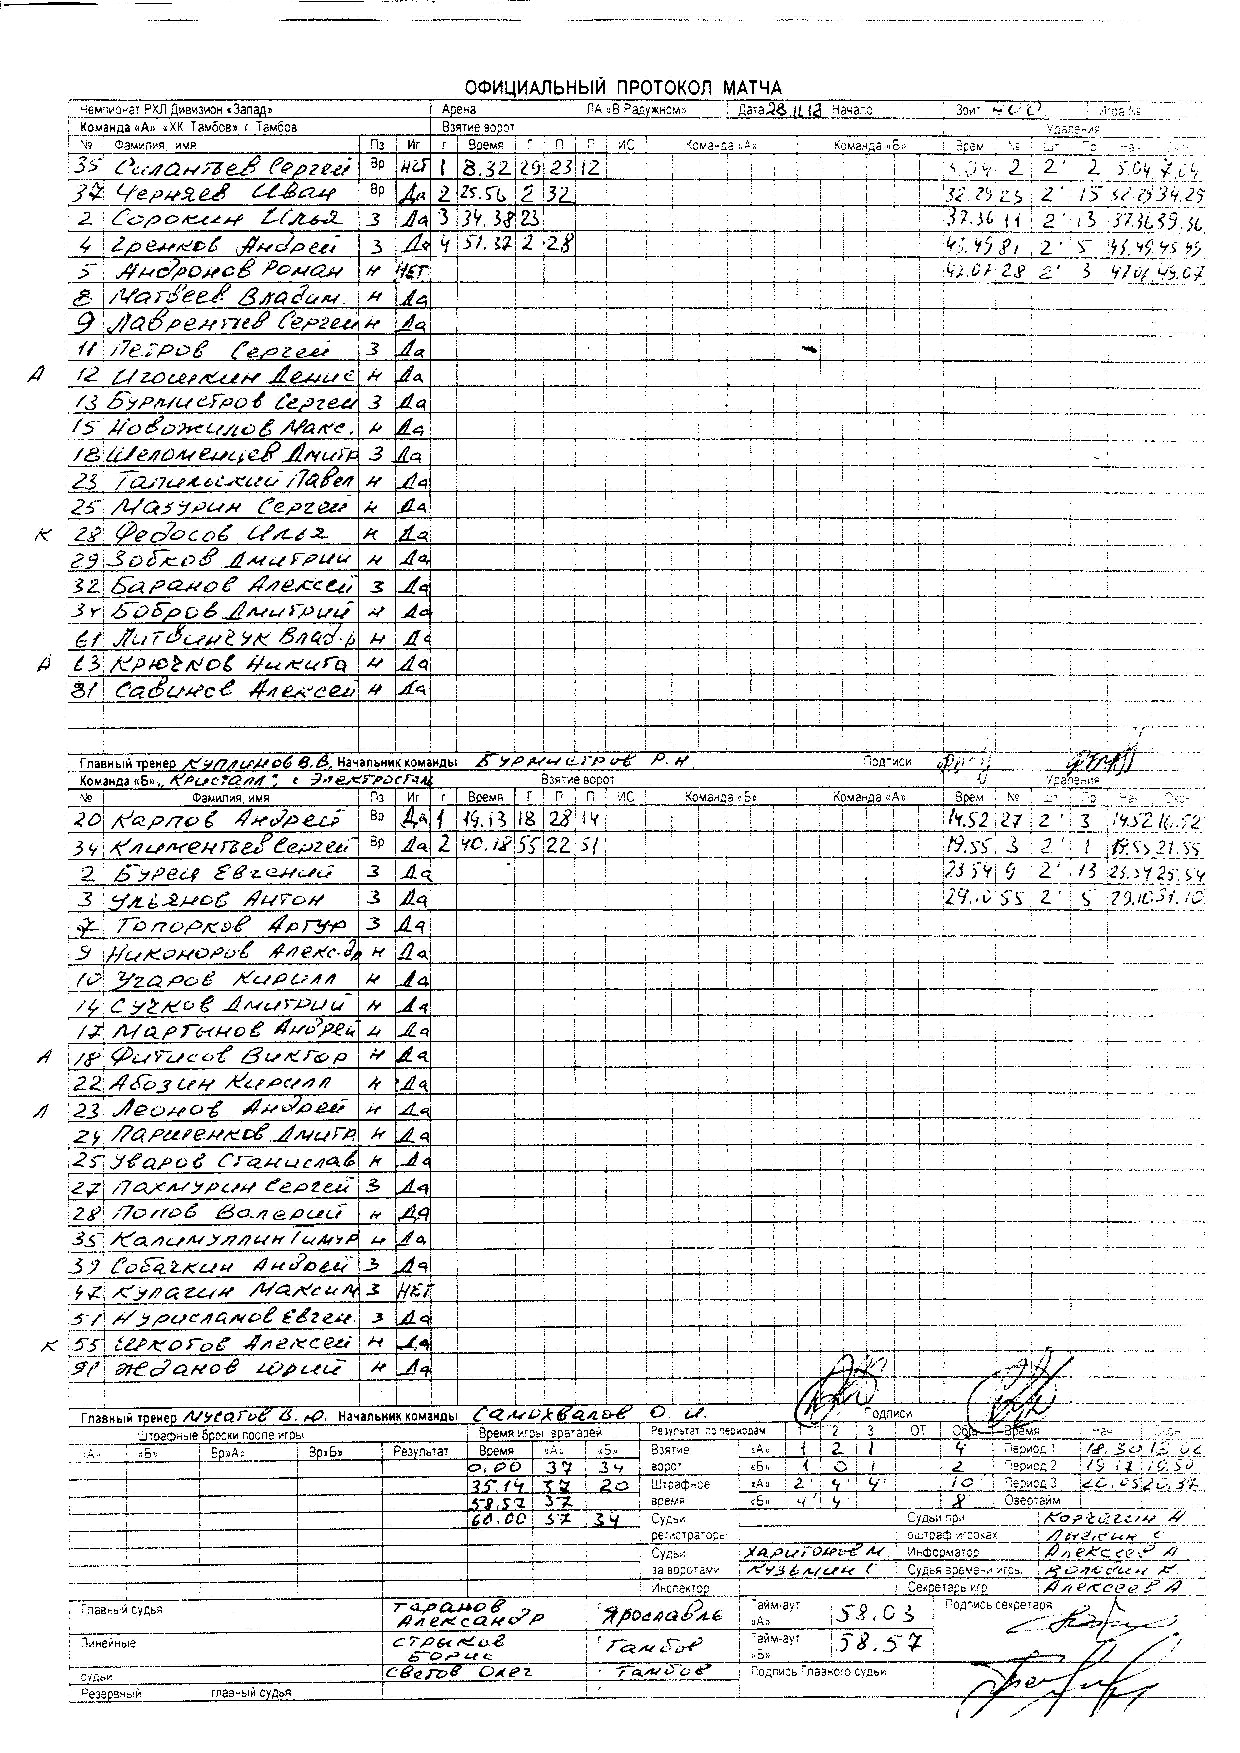 ОФИЦИАЛЬНЫЙ ПРОТОКОЛ МАТЧА
Чемпионат РХЛ Дивизион «Запад» Арена ЛА «В Радужном» Дата 28.11.13 Начало
Команда «А» «ХК Тамбов» г. Тамбов Взятие ворот Удаления
№ Фамилия, имя Пз Иг Время ИС Команда «А» Команда «Б» Врем №
35 Силантьев Сергей Вр нет 1 8.32 29 23 12 5.04 2 2' 2 5.04 7.04
37 Черняев Иван Вр Да 2 25.56 2 32 32.29 23 2' 15 32.29 34.29
2 Сорокин Илья З Да 3 34.38 23 37.36 11 2' 13 37.36 39.36
4 Гренков Андрей З Да 4 51.37 2 28 43.49 81 2' 5 43.49 45.49
5 Андронов Роман н НЕТ 47.07 28 2' 3 47.07 49.07
8 Матвеев Владим. н Да
9 Лаврентьев Сергей н Да
11 Петров Сергей З Да
А 12 Игошкин Денис н Да
13 Бурмистров Сергей З Да
15 Новожилов Макс. н Да
18 Шеломенцев Дмитр З Да
23 Тапильский Павел н Да
25 Мазурин Сергей н Да
К 28 Федосов Илья н Да
29 Зобков Дмитрий н Да
32 Баранов Алексей З Да
Бобров Дмитрий н Да
61 Литвинчук Влад-р н Да
А 63 Крючков Никита н Да
81 Савинов Алексей н Да
Главный тренер Куплинов В.В. Начальник команды Бурмистров Р.Н. Подписи
Команда «Б» „Кристалл" г. Электросталь Взятие ворот Удаления
№ Фамилия, имя Пз Иг Время ИС Команда «Б» Команда «А» Врем №
20 Карпов Андрей Вр Да 1 19.13 18 28 14 14.52 27 2' 3 14.52 16.52
34 Климентьев Сергей Вр Да 2 40.18 55 22 51 19.55 3 2' 1 19.55 21.55
2 Бурей Евгений З Да 23.54 9 2' 13 23.54 25.54
3 Ульянов Антон З Да 29.10 55 2' 5 29.10 31.10
7 Топорков Артур З Да
9 Никоноров Алекс-др н Да
10 Угаров Кирилл н Да
14 Сучков Дмитрий н Да
17 Мартынов Андрей н Да
А 18 Фитисов Виктор н Да
22 Абозин Кирилл н Да
23 Леонов Андрей н Да
24 Паршенков Дмитр н Да
25 Уваров Станислав н Да
27 Пахмурин Сергей З Да
28 Попов Валерий н Да
35 Калимуллин Тимур н Да
39 Собачкин Андрей З Да
47 Кулагин Максим З НЕТ
51 Нурисламов Евген. З Да
К 55 Шкотов Алексей н Да
91 Жданов Юрий н Да
Главный тренер Мусатов В.Ю. Начальник команды Самохвалов О.И. Подписи
Штрафные броски после игры Время игры вратарей Результат по периодам 1 2 3 ОТ Общ Время
«А» «Б» Вр«А» Вр«Б» Результат Время «А» «Б» Взятие «А» 1 2 1 4 Период 1
0.00 37 34 ворот «Б» 1 0 1 2 Период 2
35.14 37 20 Штрафное «А» 2 4 4 10 Период 3
58.57 37 время «Б» 4 4 8 Овертайм
60.00 37 34 Судьи Судьи при
регистраторы оштраф игроках
Судьи Харитонов М Информатор Алексеев А
за воротами Кузьмин Судья времени игры
Инспектор Секретарь игр Алексеев А
Главный судья Таранов Александр Ярославль Тайм-аут «А» 58.03 Подпись секретаря
Линейные Стрыков Борис Тамбов Тайм-аут «Б» 58.57
судьи Светов Олег Тамбов Подпись Главного судьи
Резервный главный судья